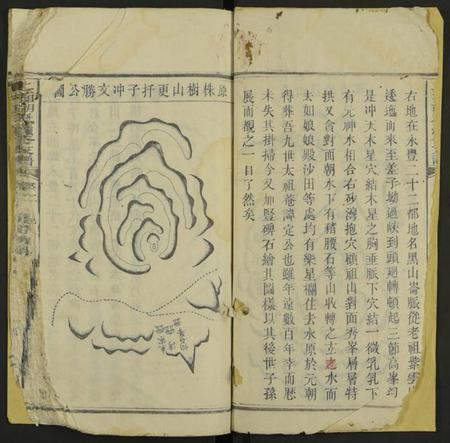 右地在永豐二十二都地名黑山崙脈從老祖紫雲山
逶迤而來至差子坳過峽到頭廻轉頓起三節高峯均
是冲天木星穴結木星之胸垂脈下穴結一微乳乳下
有元神水相合右砂灣抱穴顧祖山對面秀峯層層特
拱又貪對面朝水下有豬腰石等山收轉之立之水面
去如娘娘殿沙田等處均有樂星欄住去水原於元朝
得葬吾九世太祖菴諱定公也雖年遠數百年幸而歷
未失其掛掃今又加豎碑石繪其圖樣以其後世子孫
展而觀之一目了然矣
原株樹山更扦子冲文勝公圖